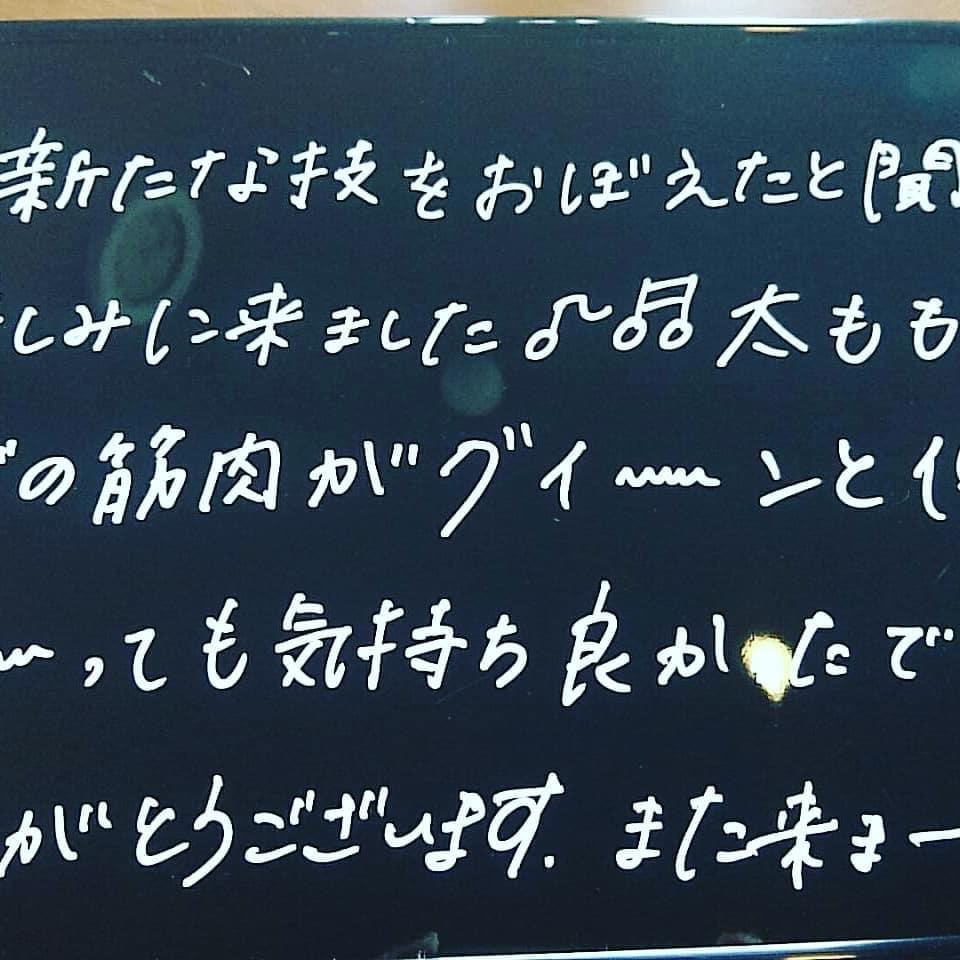 新たな技をおぼえたと聞
しみに来ました♪♫太もも
の筋肉がグイ〜ンと伸
〜っても気持ち良かったで
がとうございます.また来まー